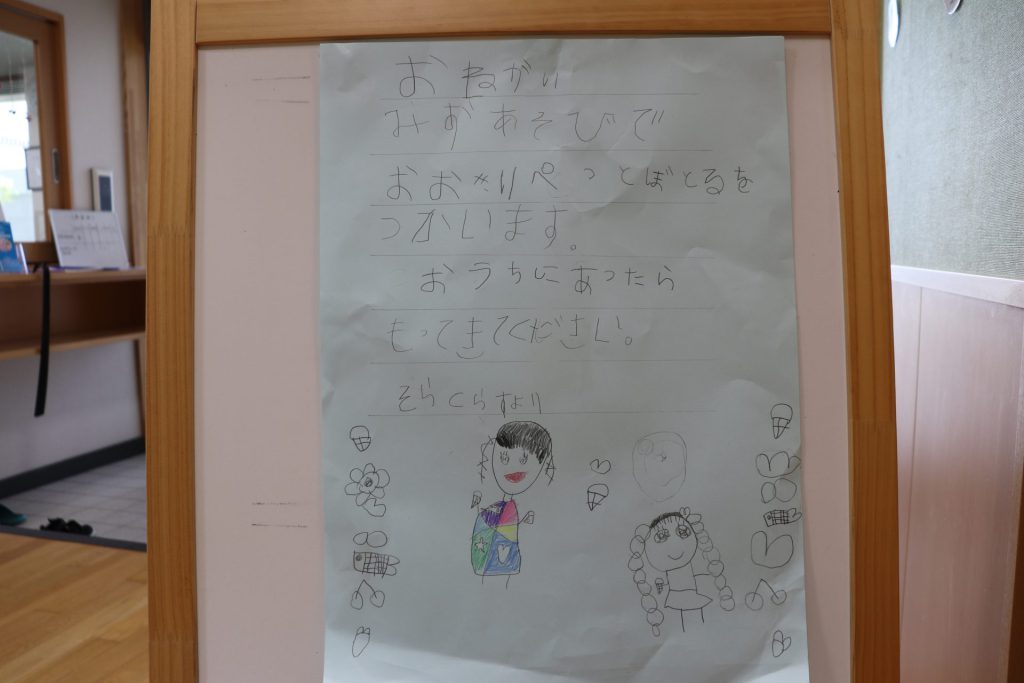 おねがい
みずあそびで
おおきいぺっとぼとるを
つかいます。
おうちにあったら
もってきてください。
そらくらすより